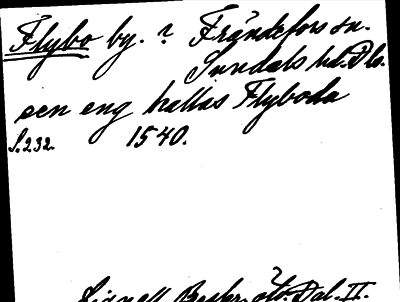 Flybo by. ? Frändefors sn.
Sundals hd. Dls.
een eng kallas Flyboda
S.232. 1540.
Lignell Beskr. öfv. Dal. II.